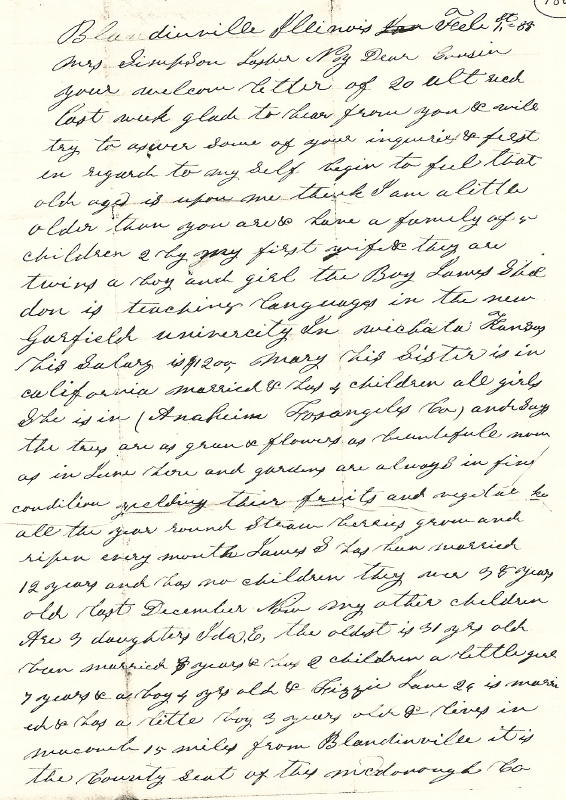 Blandinville Illinois Feb 8th 1888
Mrs Simpson Lasher My Dear Cousin
your welcom letter of 20 ult recd
last week glad to hear from you & will
try to aswer some of your inquiries & first
in regard to my Self begin to feel that
old aged is upon me think I am a little
older than you are & have a family of 5
children 2 by my first wife & they are
twins a boy and girl the Boy James Shel
don is teaching languages in the new
Garfield univercity In wichata Kansas
his Salary is $1200, Mary his Sister is in
california married & has 4 children all girls
She is in (Anaheim Losangeles Co) and Says
the tres are as gran & flowers as beautifull now
as in June here and gardens are always in fine
condition yielding their fruits and vegetae
all the year round Straw berries grow and
ripen every month James S has ben married
12 years and has no children they wer 38 years
old last December Now my other children
Are 3 daughters Ida, E, the oldest is 31 yrs old
ben married 8 years & has 2 children a little girl
7 years & a boy 4 yrs old & Lizzie Jane 29 is marri
ed & has a little boy 3 years old & lives in
macomb 15 miles from Blandinville it is
the County Seat of this mcdonough Co